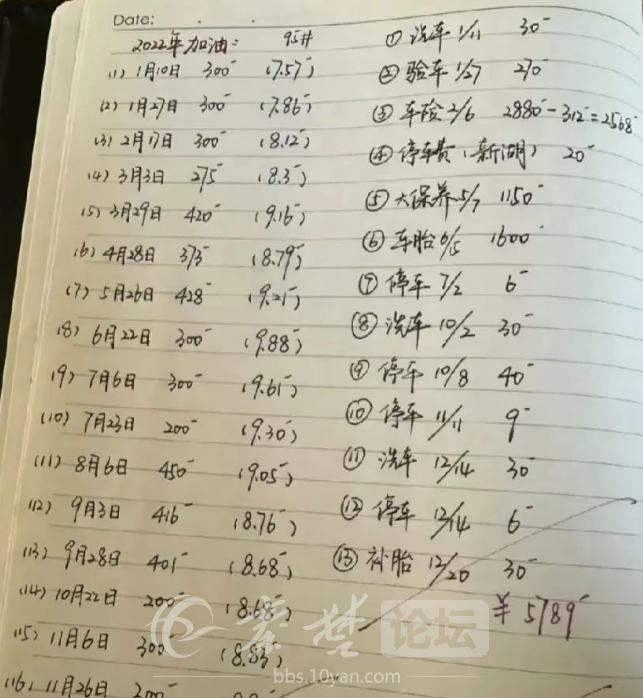 Date:
2022年加油: 95#
(1) 1月10日 300- (7.57)
(2) 1月27日 300- (7.86)
(3) 2月17日 300- (8.12)
(4) 3月3日 275- (8.3)
(5) 3月29日 420- (9.16)
(6) 4月28日 373- (8.79)
(7) 5月26日 428- (9.21)
(8) 6月22日 300- (9.88)
(9) 7月6日 300- (9.61)
(10) 7月23日 200- (9.30)
(11) 8月6日 450- (9.05)
(12) 9月3日 416- (8.76)
(13) 9月28日 401- (8.68)
(14) 10月22日 200- (8.68)
(15) 11月6日 300- (8.83)
(16) 11月26日
① 洗车 1/11 30-
② 验车 1/27 270-
③ 车险 2/6 2880-312=2568-
④ 停车费(新湖) 20-
⑤ 大保养 5/7 1150-
⑥ 车胎 6/5 1600-
⑦ 停车 7/2 6-
⑧ 洗车 10/2 30-
⑨ 停车 10/8 40-
⑩ 停车 11/11 9-
⑪ 洗车 12/14 30-
⑫ 停车 12/14 6-
⑬ 补胎 12/20 30-
¥ 5789-
秦楚论坛
bbs.10yan.com